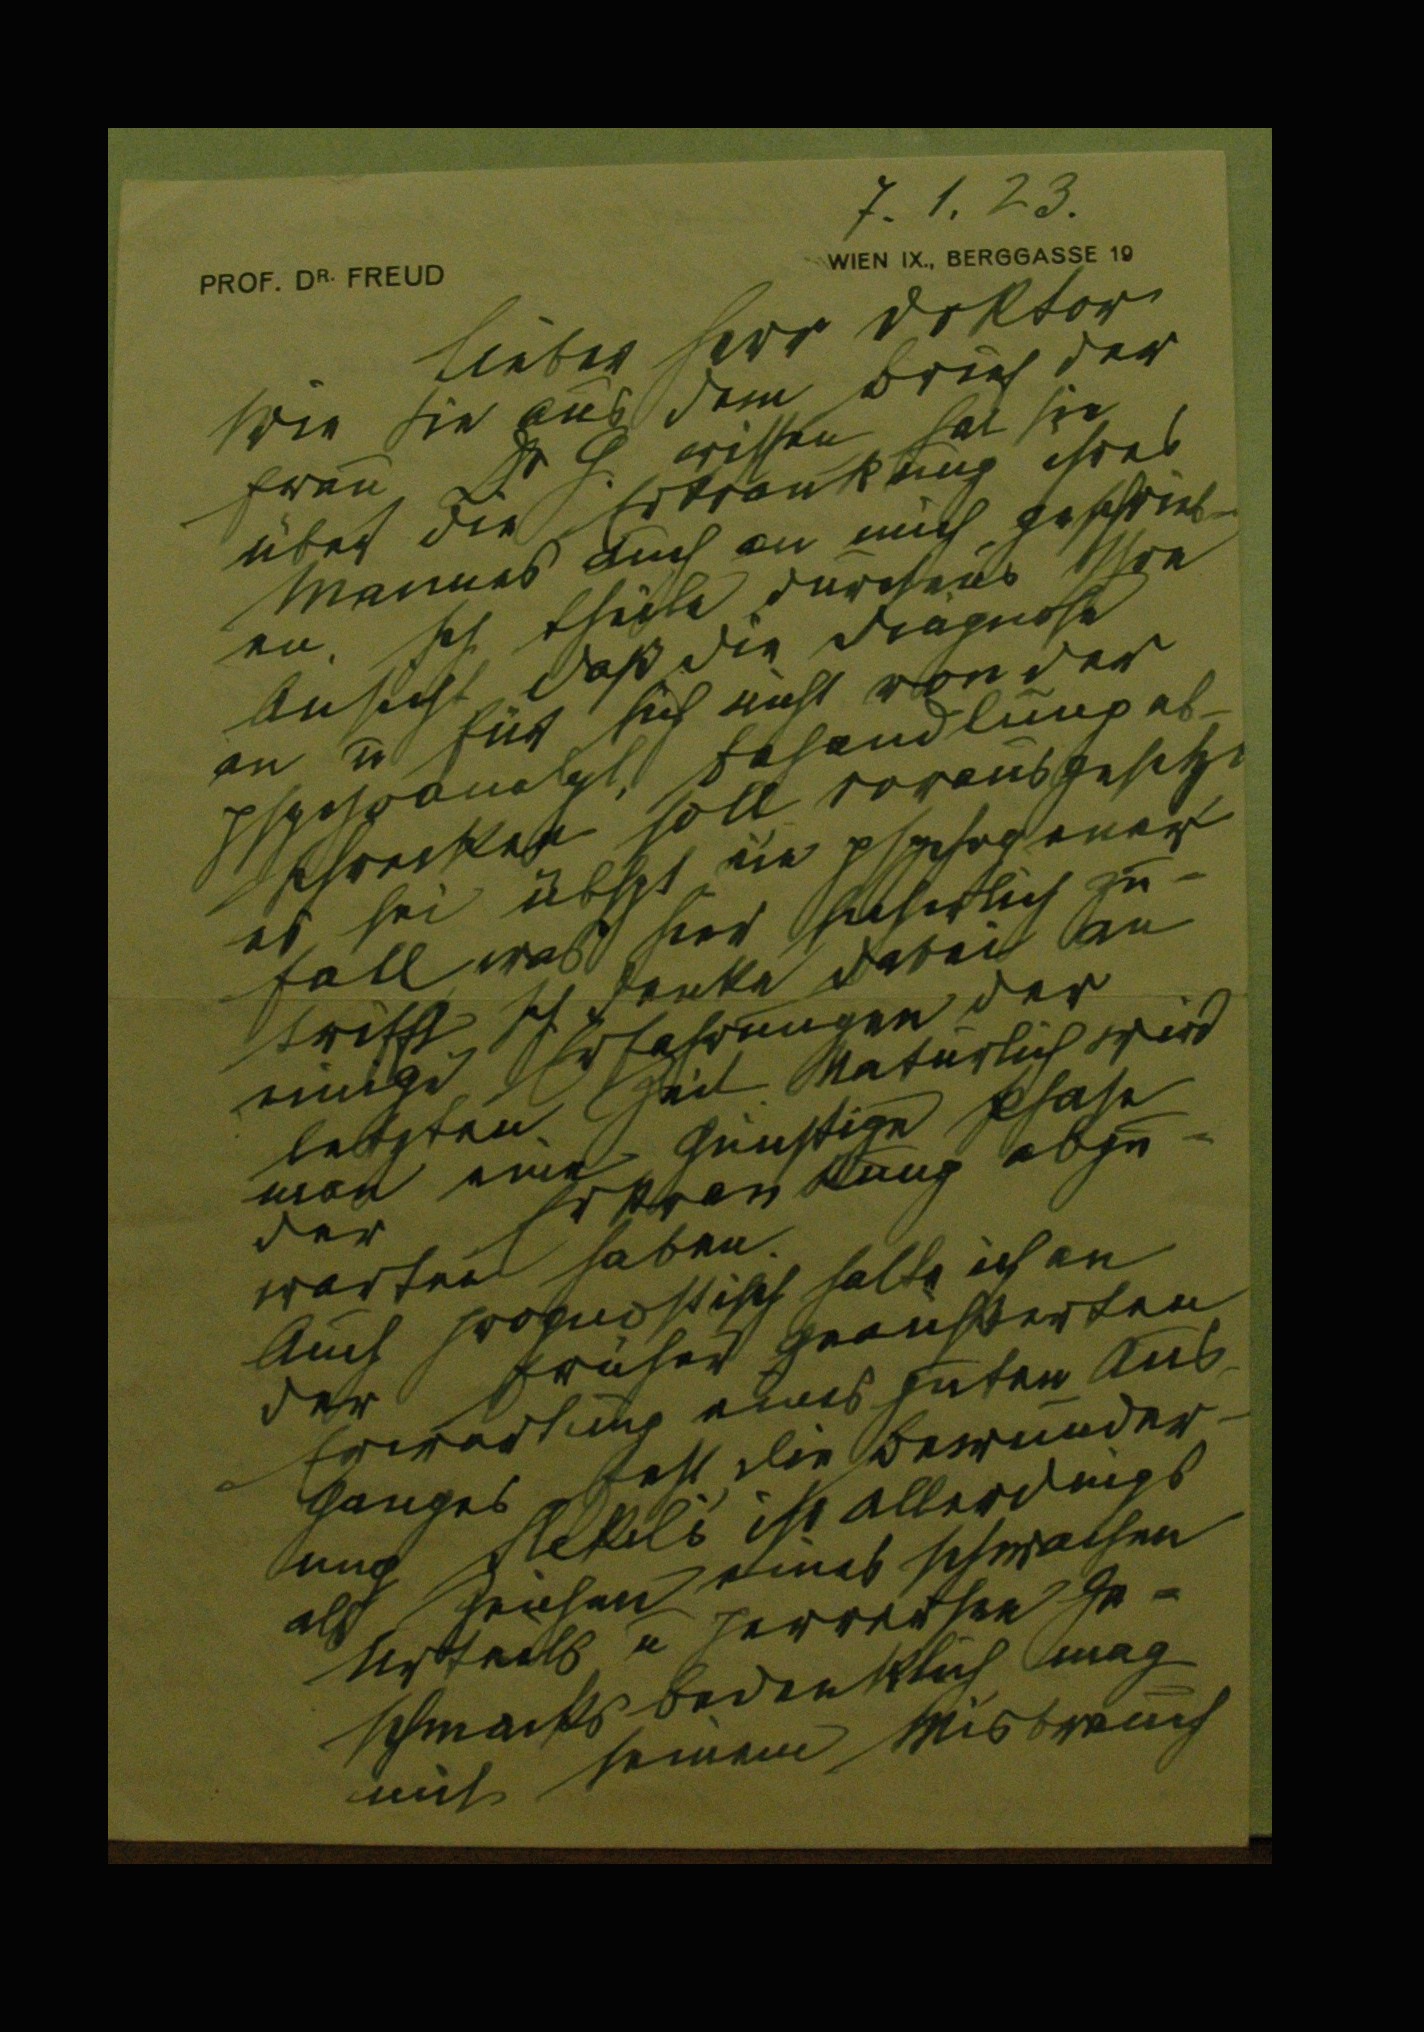 7. 1. 23.
PROF. DR. FREUD
WIEN IX., BERGGASSE 19
Lieber Herr Doktor
Wie Sie aus dem Brief der
Frau Dr G. wissen hat sie
über die Erkrankung ihres
Mannes auch an mich geschrieb-
en. Ich theile durchaus Ihre
Ansicht daß die Diagnose
an u für sich nicht von der
psychoanalyt. Behandlung ab-
schrecken soll vorausgesetzt
es sei übhpt ein psychogener
Fall was hier sicherlich zu-
trifft. Ich denke dabei an
einige Erfahrungen der
letzten Zeit. Natürlich wird
man eine günstige Phase
der Erkrankung abzu-
warten haben.
Auch prognostisch halte ich an
der früher geäußerten
Erwartung eines guten Aus-
ganges fest, die Bewunder-
ung Stekels ist allerdings
als Zeichen eines schwachen
Urteils u perversen Ge-
schmacks bedenklich mag
mit seinem Misbrauch